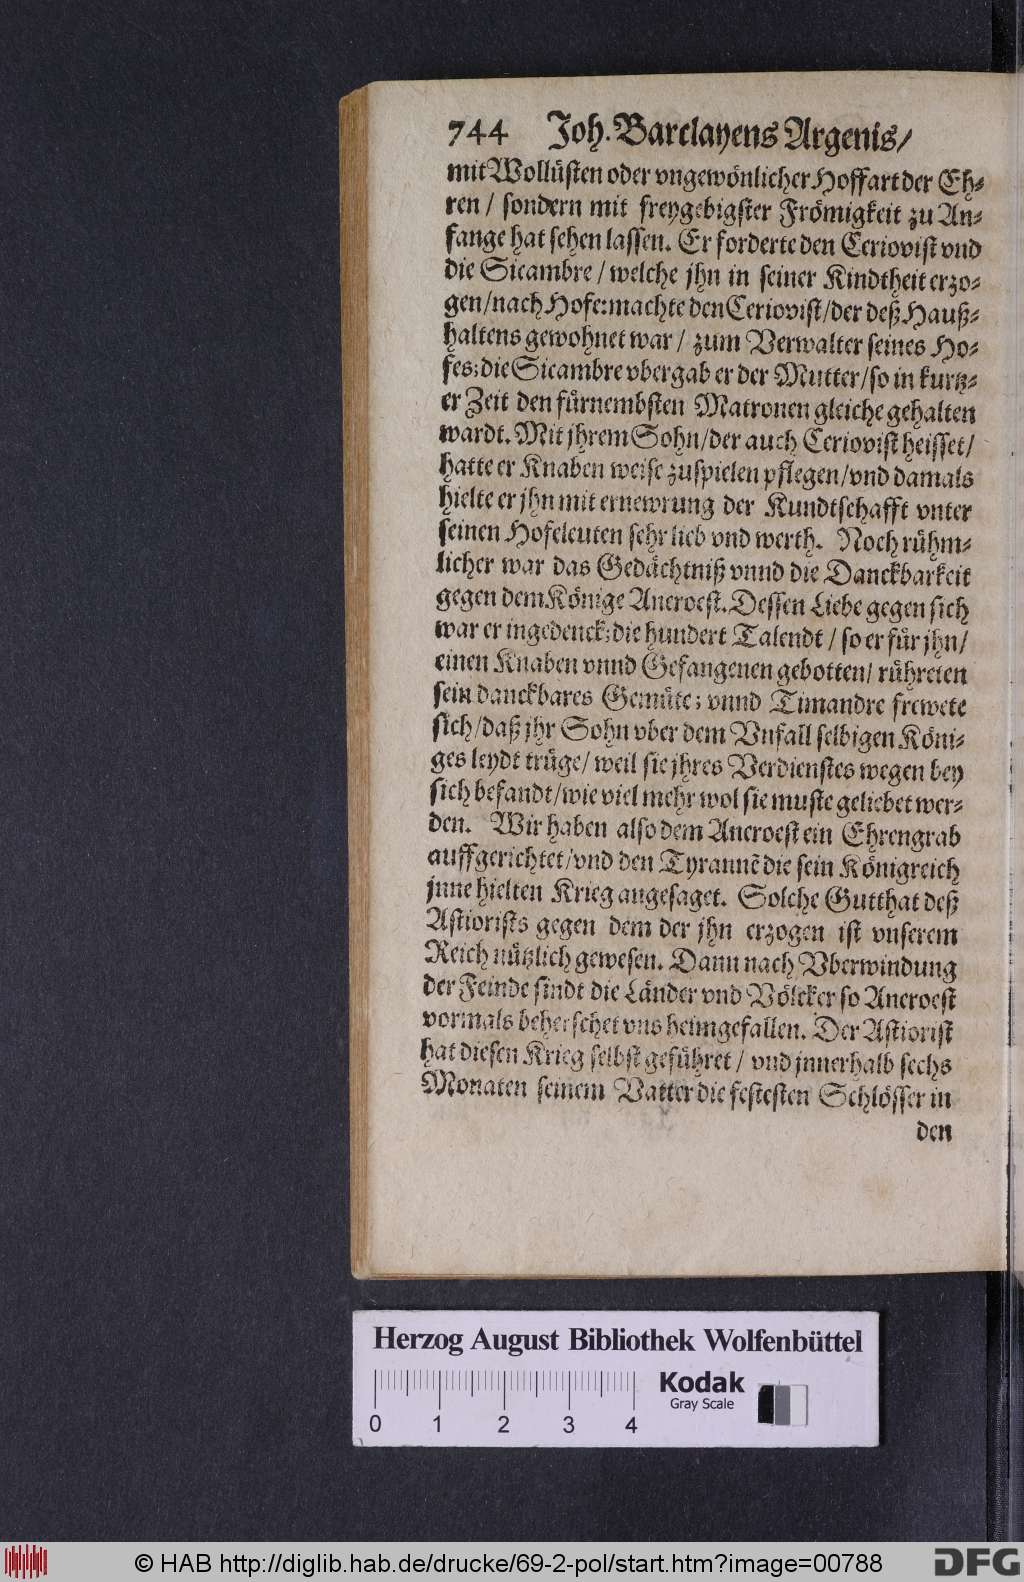 744 Joh. Barclayens Argenis/
mit Wollüsten oder vngewönlicher Hoffart der Eh-
ren / sondern mit freygebigster Frömigkeit zu An-
fange hat sehen lassen. Er forderte den Ceriovist vnd
die Sicambre / welche jhn in seiner Kindtheit erzo-
gen/nach Hofe: machte den Ceriovist/der deß Hauß-
haltens gewohnet war / zum Verwalter seines Ho-
fes; die Sicambre vbergab er der Mutter/so in kurtz-
er Zeit den fürnembsten Matronen gleiche gehalten
wardt. Mit jhrem Sohn/der auch Ceriovist heisset/
hatte er Knaben weise zuspielen pflegen/vnd damals
hielte er jhn mit ernewrung der Kundtschafft vnter
seinen Hofeleuten sehr lieb vnd werth. Noch rühm-
licher war das Gedächtniß vnnd die Danckbarkeit
gegen dem Könige Aneroest. Dessen Liebe gegen sich
war er ingedenck; die hundert Talendt / so er für jhn/
einen Knaben vnnd Gefangenen gebotten/ rühreten
sein danckbares Gemüte; vnnd Timandre frewete
sich/daß jhr Sohn vber dem Vnfall selbigen Köni-
ges leydt trüge/ weil sie jhres Verdienstes wegen bey
sich befandt/wie viel mehr wol sie muste geliebet wer-
den. Wir haben also dem Aneroest ein Ehrengrab
auffgerichtet/vnd den Tyrannē die sein Königreich
jnne hielten Krieg angesaget. Solche Gutthat deß
Astiorists gegen dem der jhn erzogen ist vnserem
Reich nützlich gewesen. Dann nach Vberwindung
der Feinde sindt die Länder vnd Völcker so Aneroest
vormals beherschet vns heimgefallen. Der Astiorist
hat diesen Krieg selbst geführet / vnd jnnerhalb sechs
Monaten seinem Vatter die festesten Schlösser in
den
Herzog August Bibliothek Wolfenbüttel
Kodak
Gray Scale
0 1 2 3 4
© HAB http://diglib.hab.de/drucke/69-2-pol/start.htm?image=00788
DFG